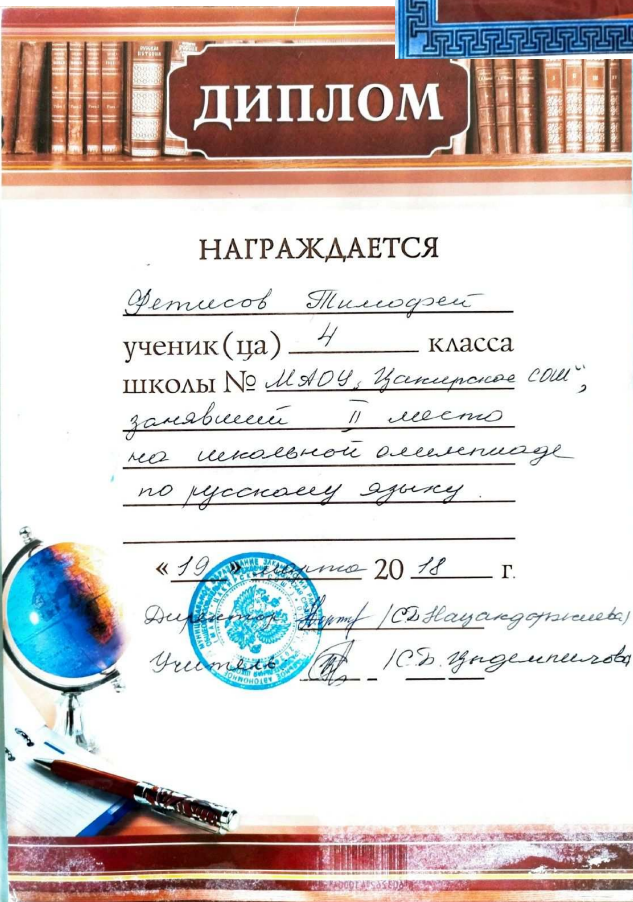 ДИПЛОМ
НАГРАЖДАЕТСЯ
Фетисов Тимофей
ученик(ца) 4 класса
школы № МАОУ "Цакирская СОШ",
занявший II место
на школьной олимпиаде
по русскому языку.
«19» марта 2018 г.
Директор /С.Д. Нацагдоржиева/
Учитель /С.Б. Цыдемпилова/